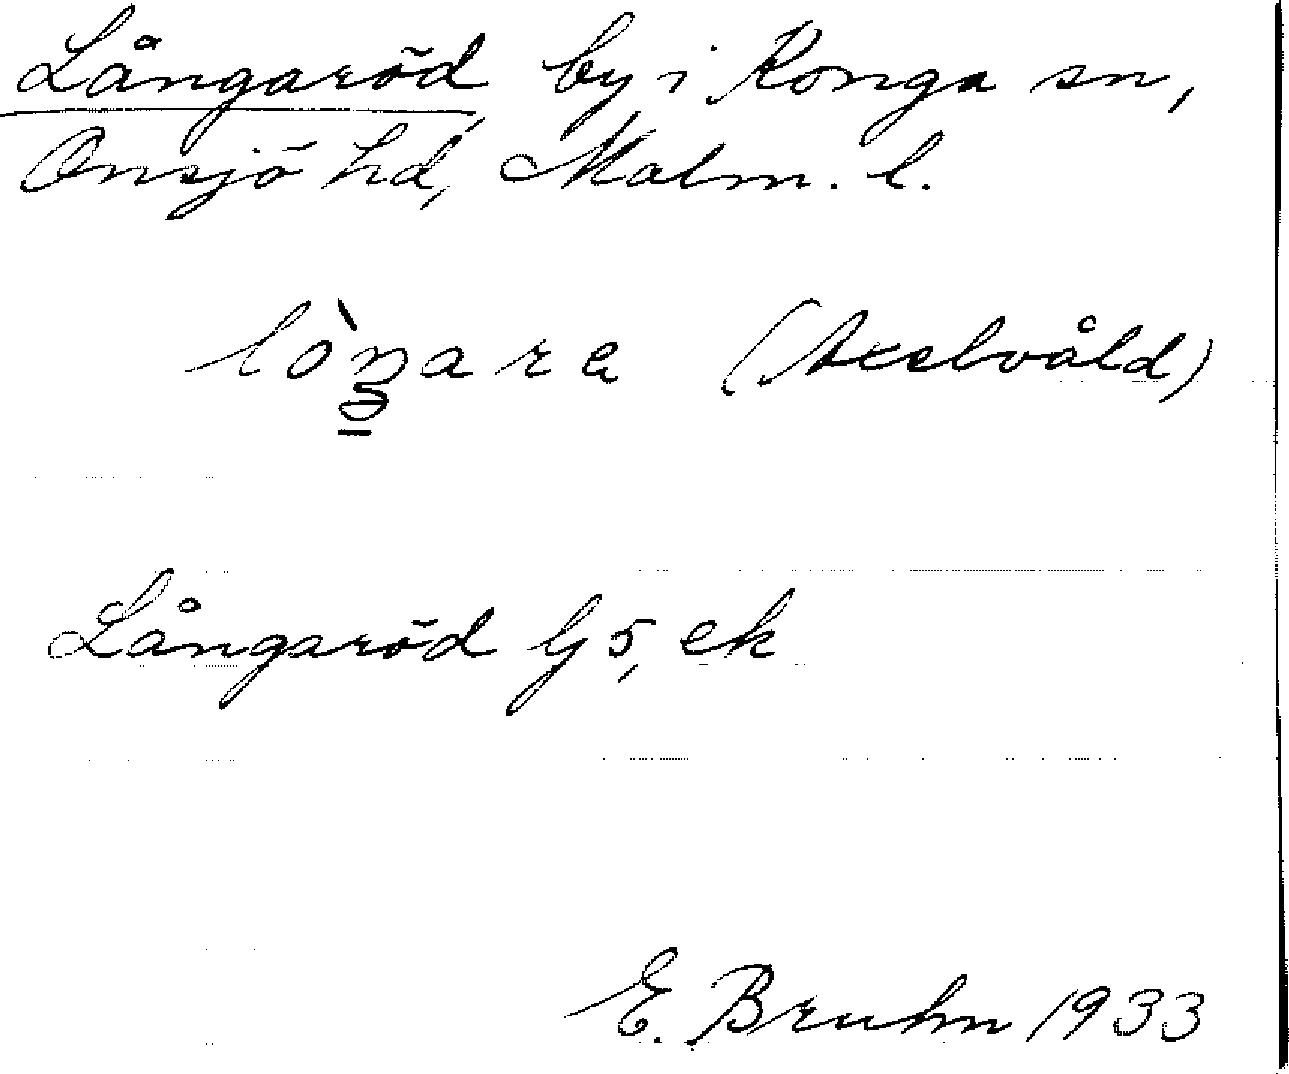 Långaröd by i Konga sn,
Onsjö hd, Malm. l.
(Axelvåld)
Långaröd G5, ek
E. Bruhn 1933